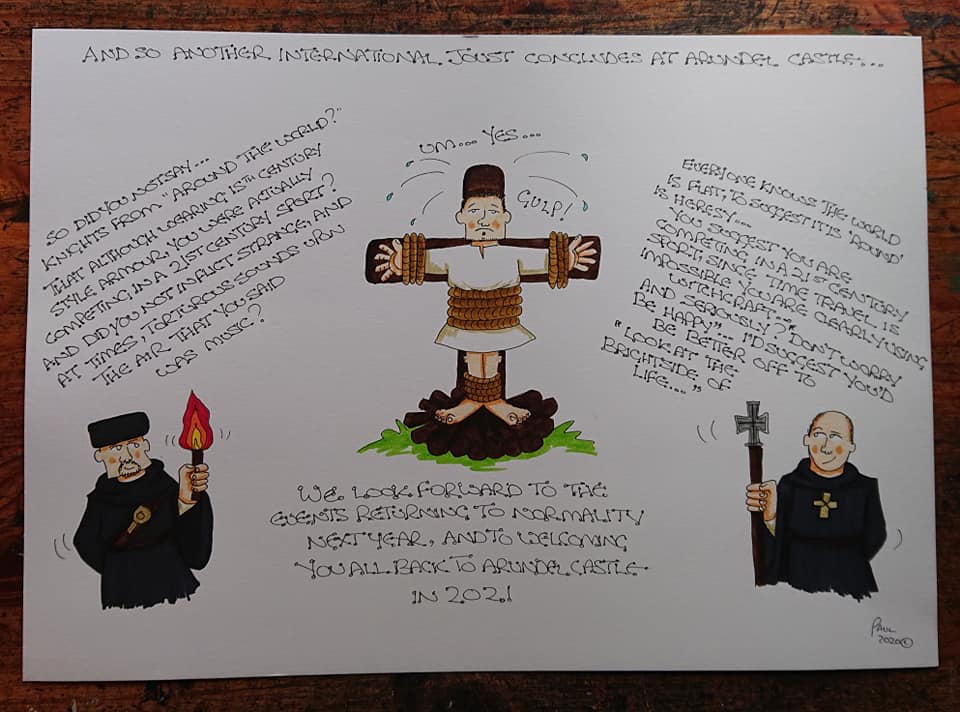 AND SO ANOTHER INTERNATIONAL JOUST CONCLUDES AT ARUNDEL CASTLE...
SO DID YOU NOT SAY...
KNIGHTS FROM "AROUND THE WORLD?"
THAT ALTHOUGH WEARING 15TH CENTURY
STYLE ARMOUR, YOU WERE ACTUALLY
COMPETING IN A 21ST CENTURY SPORT?
AND DID YOU NOT INFLICT STRANGE, AND
AT TIMES, TORTUROUS SOUNDS UPON
THE AIR THAT YOU SAID
WAS MUSIC?
UM... YES...
GULP!
EVERYONE KNOWS THE WORLD
IS FLAT, TO SUGGEST IT IS 'ROUND'
IS HERESY...
YOU SUGGEST YOU ARE
COMPETING IN A 21ST CENTURY
SPORT; SINCE TIME TRAVEL IS
IMPOSSIBLE YOU ARE CLEARLY USING
WITCHCRAFT...
AND SERIOUSLY? "DON'T WORRY
BE HAPPY"... I'D SUGGEST YOU'D
BE BETTER OFF TO
"LOOK AT THE
BRIGHTSIDE OF
LIFE...."
WE LOOK FORWARD TO THE
EVENTS RETURNING TO NORMALITY
NEXT YEAR, AND TO WELCOMING
YOU ALL BACK TO ARUNDEL CASTLE
IN 2021
PAUL
2020©